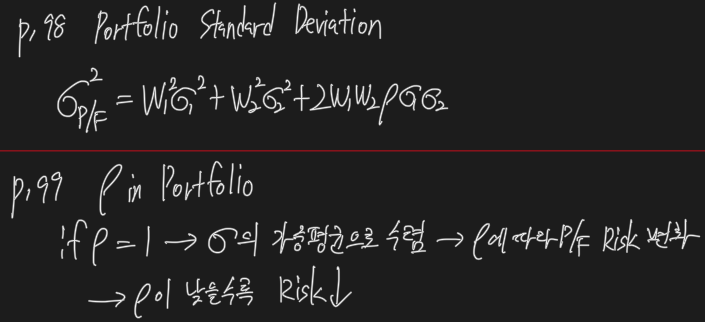 p.98 Portfolio Standard Deviation
σ²P/F = W₁²σ₁² + W₂²σ₂² + 2W₁W₂ρσσ₂
p.99 ρ in Portfolio
if ρ = 1 → σ의 가중평균으로 수렴 → ρ에 따라 P/F Risk 변화
→ ρ이 낮을수록 Risk↓